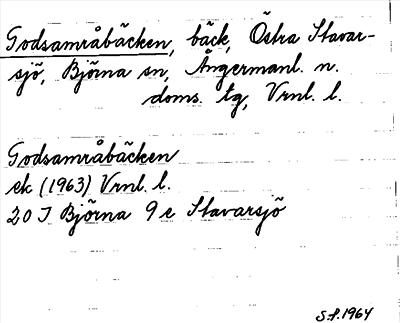 Godsamråbäcken, bäck, Östra Stavar-
sjö, Björna sn, Ångermanl. n.
doms. tg, Vrnl. l.
Godsamråbäcken
ek (1963) Vrnl. l.
20 J Björna 9 e Stavarsjö
S.f.1964